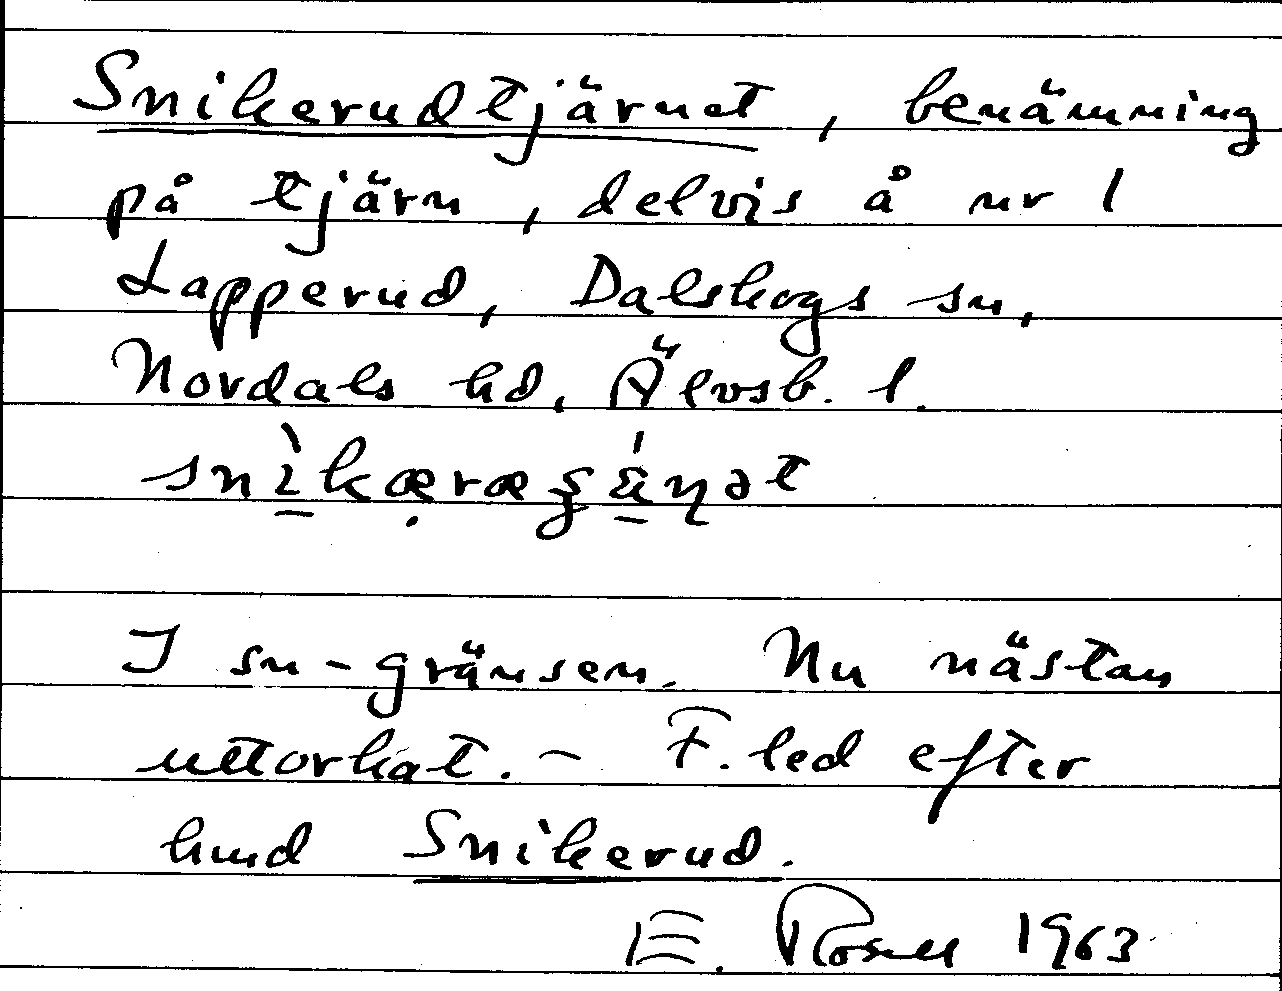 Snikerudtjärnet, benämning
på tjärn, delvis å nr 1
Lapperud, Dalskogs sn,
Nordals hd, Älvsb. l.
I sn-gränsen. Nu nästan
uttorkat. - F. led efter
hmd Snikerud.
E. Rosell 1963